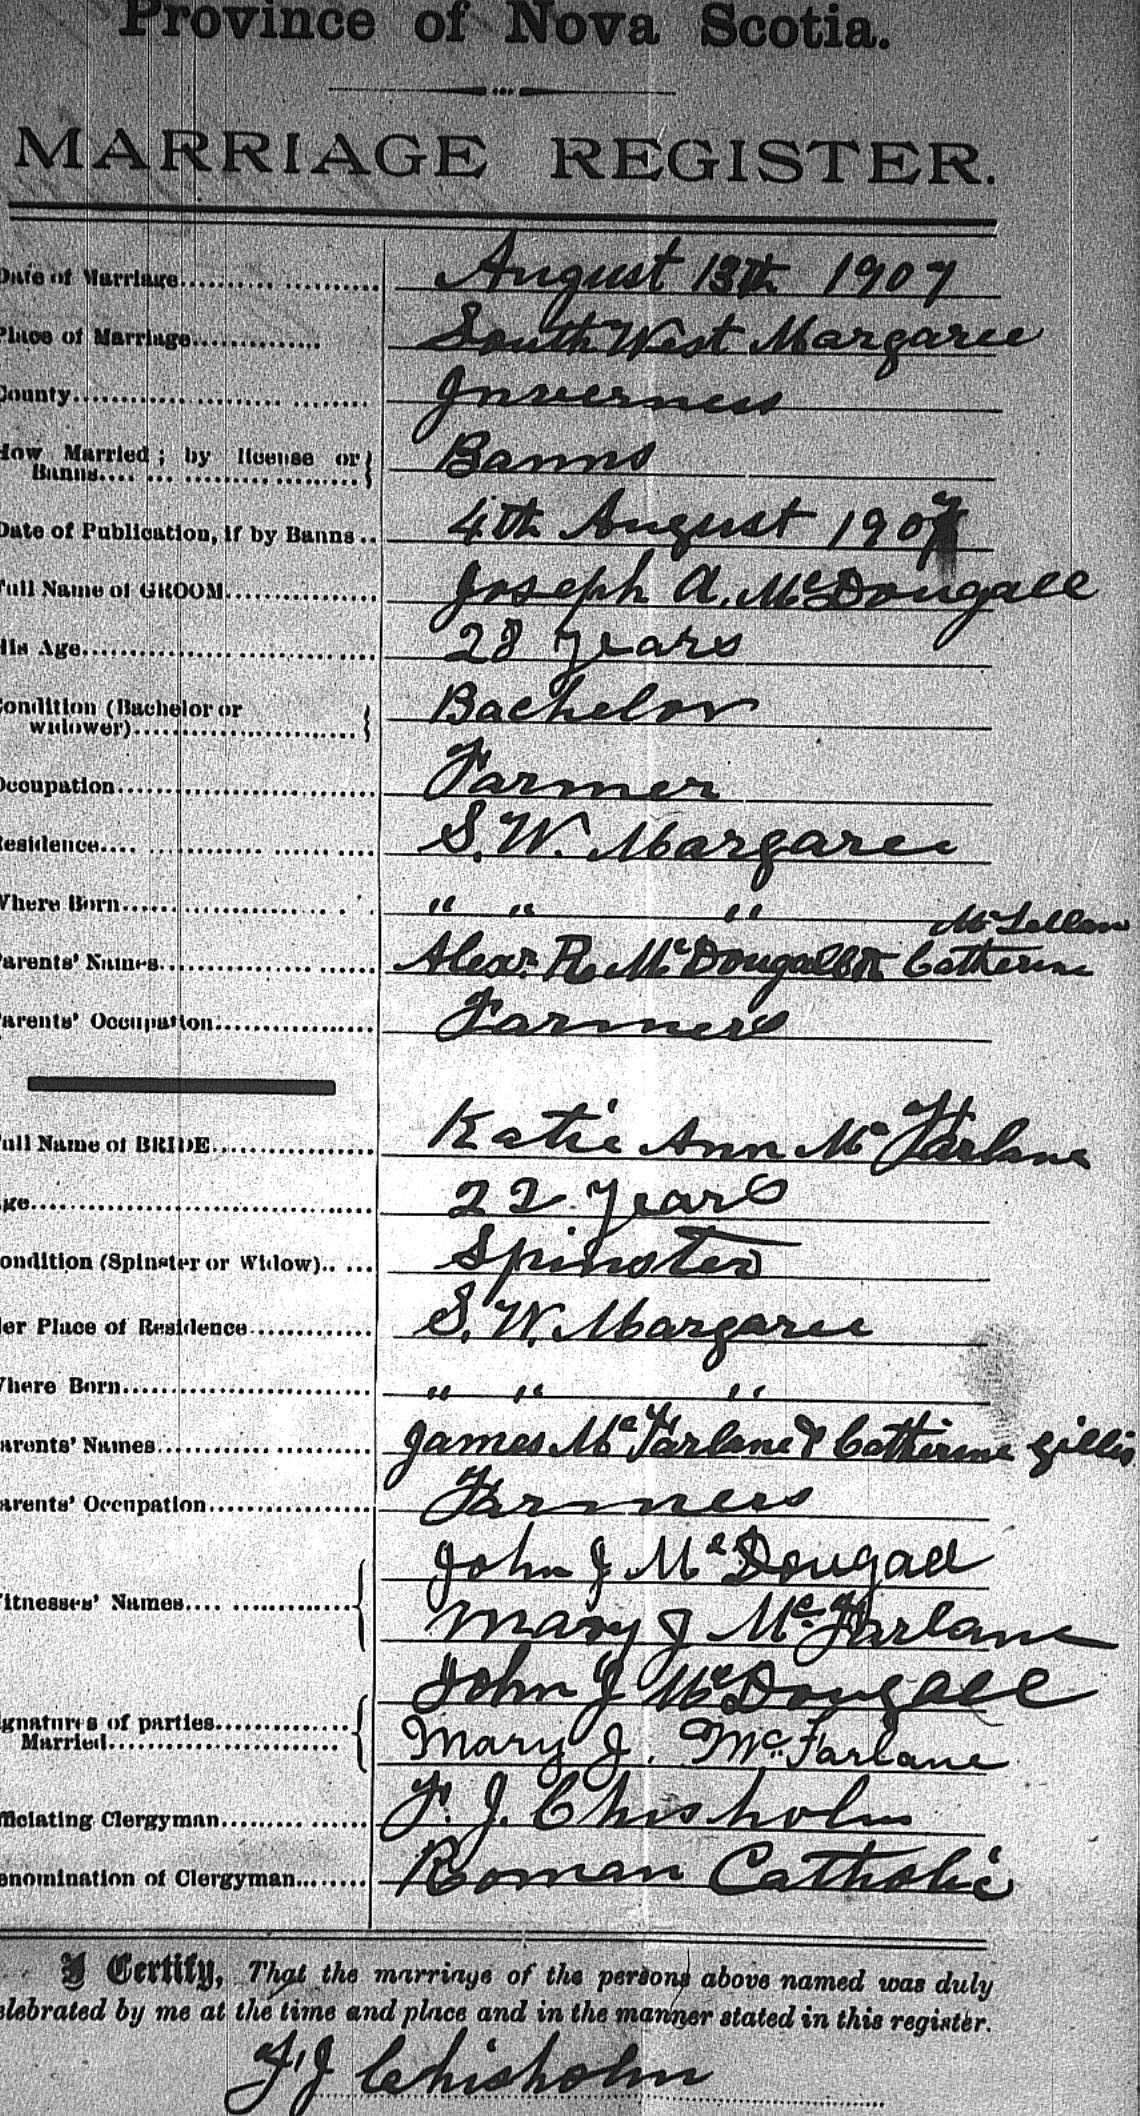 Province of Nova Scotia.
MARRIAGE REGISTER.
Date of Marriage August 13th 1907
Place of Marriage South West Margaree
County Inverness
How Married; by license or Banns Banns
Date of Publication, if by Banns 4th August 1907
Full Name of GROOM Joseph A. McDougall
His Age 28 years
Condition (Bachelor or widower) Bachelor
Occupation Farmer
Residence S.W. Margaree
Where Born " " "
McLellan
Parents' Names Alexr R. McDougall & Catherine
Parents' Occupation Farmers
Full Name of BRIDE Katie Ann McFarlane
Age 22 Years
Condition (Spinster or Widow) Spinster
Her Place of Residence S.W. Margaree
Where Born " " "
Parents' Names James McFarlane & Catherine Gillis
Parents' Occupation Farmers
John J McDougall
Witnesses' Names
Mary J McFarlane
John J McDougall
Signatures of parties
Married
Mary J. McFarlane
Officiating Clergyman F. J. Chisholm
Denomination of Clergyman Roman Catholic
I Certify, That the marriage of the persons above named was duly
celebrated by me at the time and place and in the manner stated in this register.
F. J Chisholm